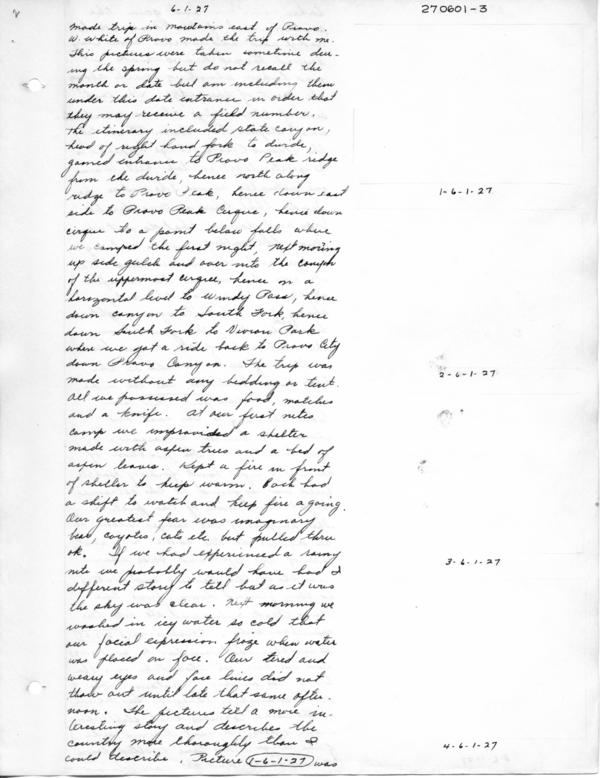 6-1-27
270601-3
made trip in mountains east of Provo.
W. White of Provo made the trip with me.
This pictures were taken sometime dur-
ing the spring but do not recall the
month or date but am including them
under this date entrance in order that
they may receive a field number.
The itinerary included state canyon,
head of right hand fork to divide,
gained entrance to Provo Peak ridge
from the divide, hence north along
ridge to Provo Peak, hence down east
side to Provo Peak Cirque, hence down
cirque to a point below falls where
we camped the first night, next morning
up side gulch and over into the
of the uppermost cirque, hence on a
horizontal level to Windy Pass, hence
down canyon to South Fork, hence
down South Fork to Vivian Park
where we got a ride back to Provo City
down Provo Canyon. The trip was
made without any bedding or tent.
All we possessed was food, matches
and a knife. At our first nites
camp we improvided a shelter
made with aspen trees and a bed of
aspen leaves. Kept a fire in front
of shelter to keep warm. Each had
a shift to watch and keep fire a going.
Our greatest fear was imaginary
bear, coyotes, cats etc. but pulled thru
ok. If we had experienced a rainy
nite we probably would have had a
different story to tell but as it was
the sky was clear. Next morning we
washed in icy water so cold that
our facial expression froze when water
was placed on face. Our tered and
weary eyes and face lines did not
thaw out until late that same after-
noon. The pictures tell a more in-
teresting story and describes the
country more thoroughly than I
could describe. Picture 1-6-1-27 was
1-6-1-27
2-6-1-27
3-6-1-27
4-6-1-27